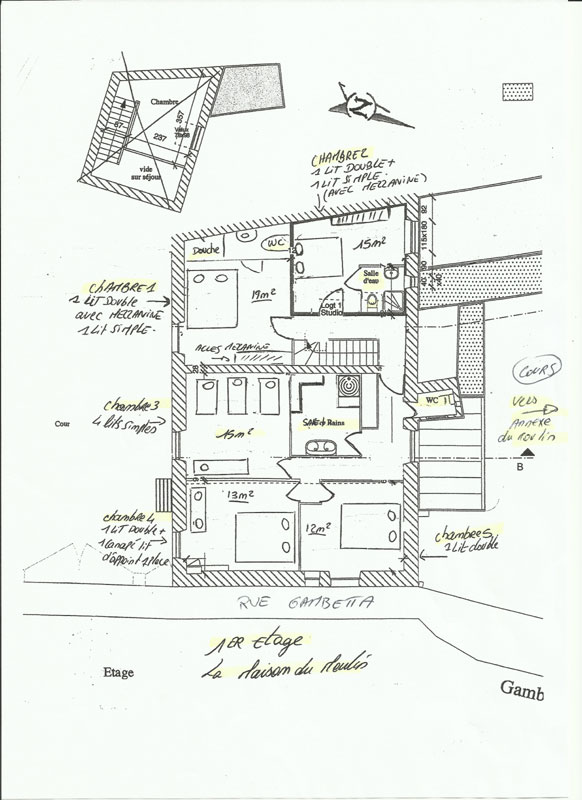 Chambre
357
67
237
vide
sur séjour
N
CHAMBRE 2
1 LIT DOUBLE +
1 LIT SIMPLE
(AVEC MEZZANINE)
92
115x180
Douche
WC
15m²
Salle
d'eau
Logt 1
Studio
19m²
CHAMBRE 1
1 LIT DOUBLE
avec MEZZANINE
1 LIT SIMPLE.
ACCES MEZZANINE
COURS
Vers
Annexe
du Moulin
chambre 3
4 lits simples
Cour
15m²
WC
B
13m²
12m²
chambre 4
1 LIT Double +
1 canapé lit
d'appoint 1 place
chambre 5
1 Lit double
RUE GAMBETTA
1ER Etage
La Maison du Moulin
Etage
Gamb